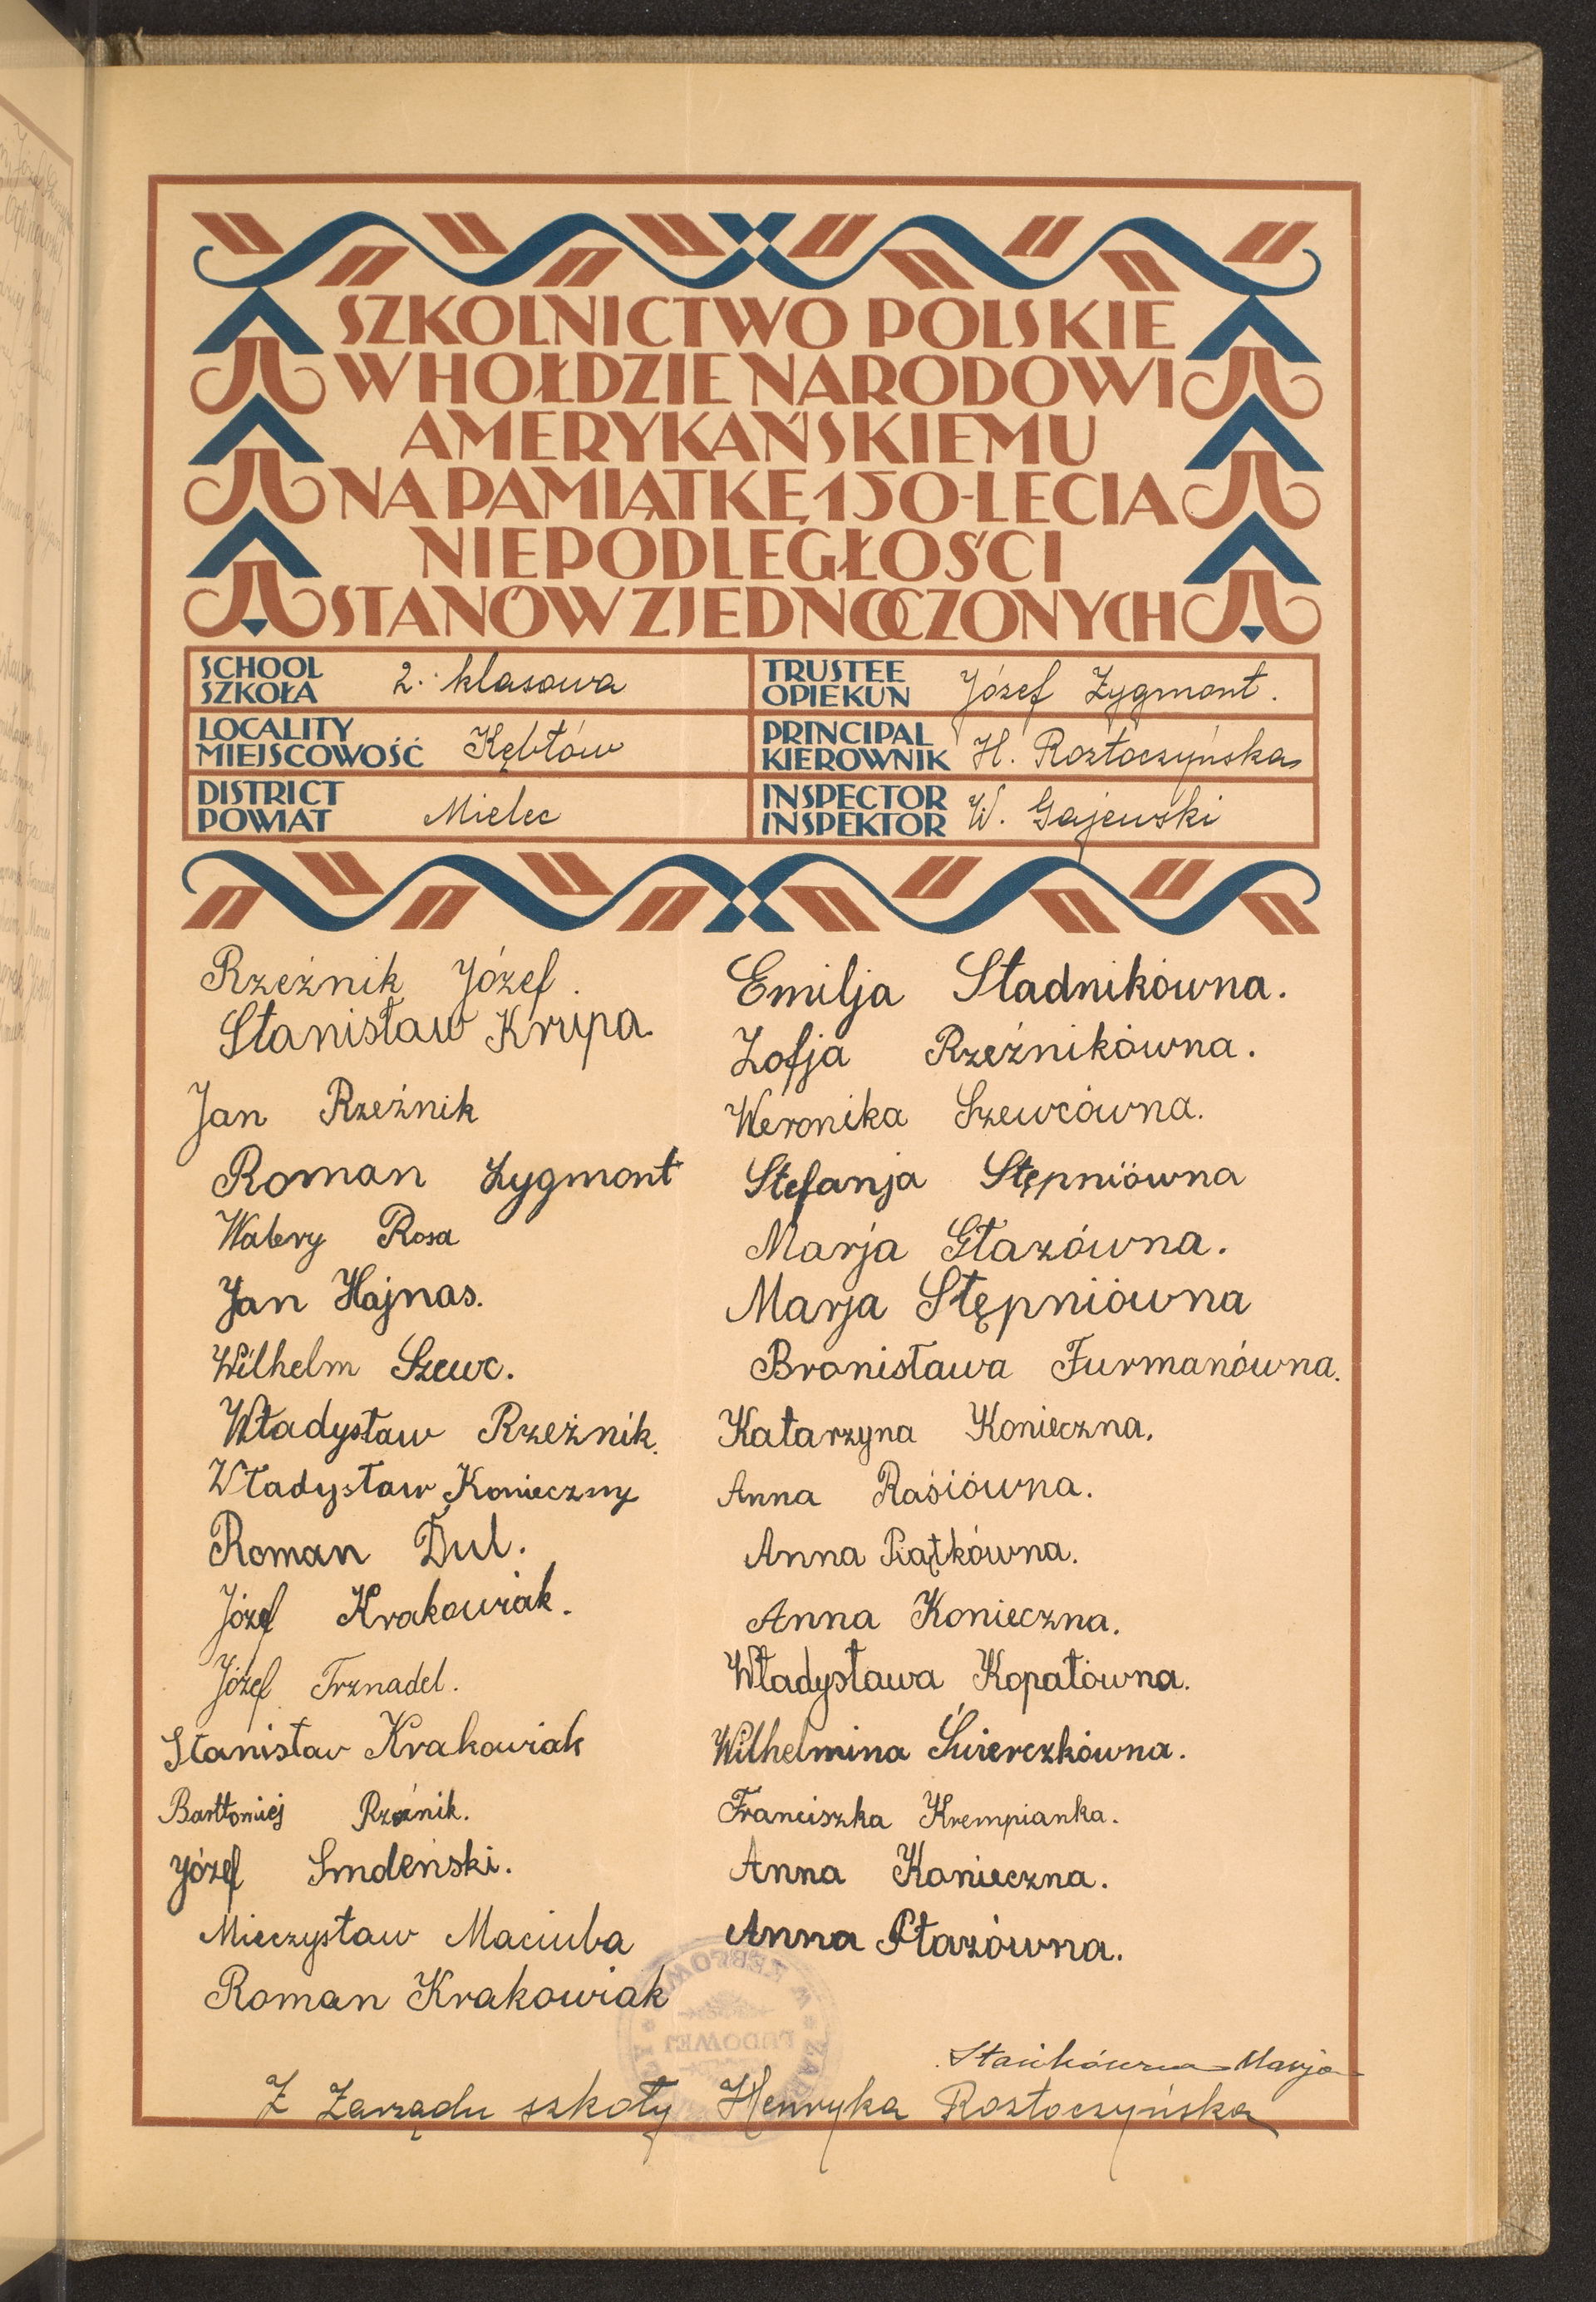 SZKOLNICTWO POLSKIE
W HOŁDZIE NARODOWI
AMERYKAŃSKIEMU
NA PAMIĄTKĘ 150-LECIA
NIEPODLEGŁOŚCI
STANÓW ZJEDNOCZONYCH
SCHOOL
SZKOŁA 2. klasowa
TRUSTEE
OPIEKUN Józef Zygmont.
LOCALITY
MIEJSCOWOŚĆ Kębłów
PRINCIPAL
KIEROWNIK H. Roztoczyńska
DISTRICT
POWIAT Mielec
INSPECTOR
INSPEKTOR W. Gajewski
Rzeźnik Józef.
Stanisław Krupa.
Jan Rzeźnik
Roman Zygmont
Walery Rosa
Jan Hajnas.
Wilhelm Szewc.
Władysław Rzeźnik.
Władysław Konieczny
Roman Dul.
Józef Krakowiak.
Józef Trznadel.
Stanisław Krakowiak
Bartłomiej Rzeźnik.
Józef Smoleński.
Mieczysław Maciuba
Roman Krakowiak
Emilja Stadnikówna.
Zofja Rzeźnikówna.
Weronika Szewcówna.
Stefanja Stępniówna
Marja Głazówna.
Marja Stępniówna
Bronisława Furmanówna.
Katarzyna Konieczna.
Anna Rosiówna.
Anna Piątkówna.
Anna Konieczna.
Władysława Kopałówna.
Wilhelmina Świerczkówna.
Franciszka Krempianka.
Anna Konieczna.
Anna Płazówna.
LUDOWEJ
Marja
Z Zarządu szkoły Henryka Roztoczyńska